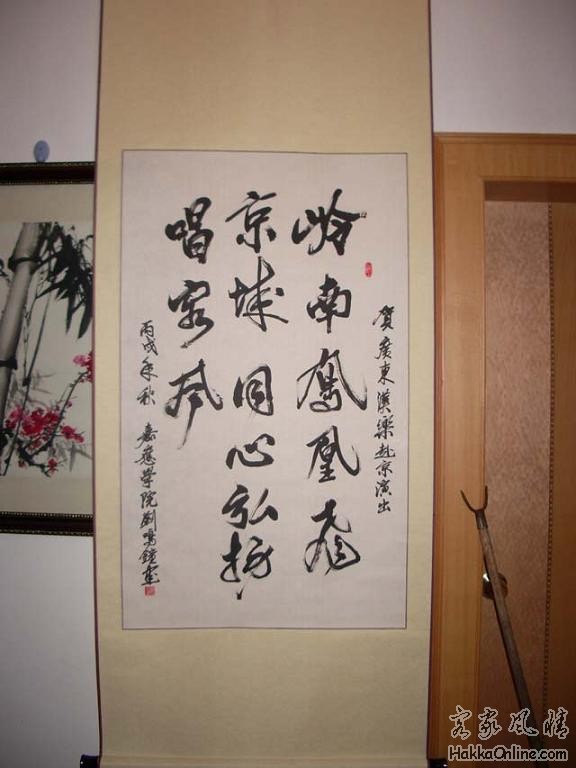 賀廣東漢樂赴京演出
岭南鳳凰飛
京城同心弘揚
唱客風
丙戌年秋 嘉應學院劉鳴書
客家風情
HakkaOnline.com